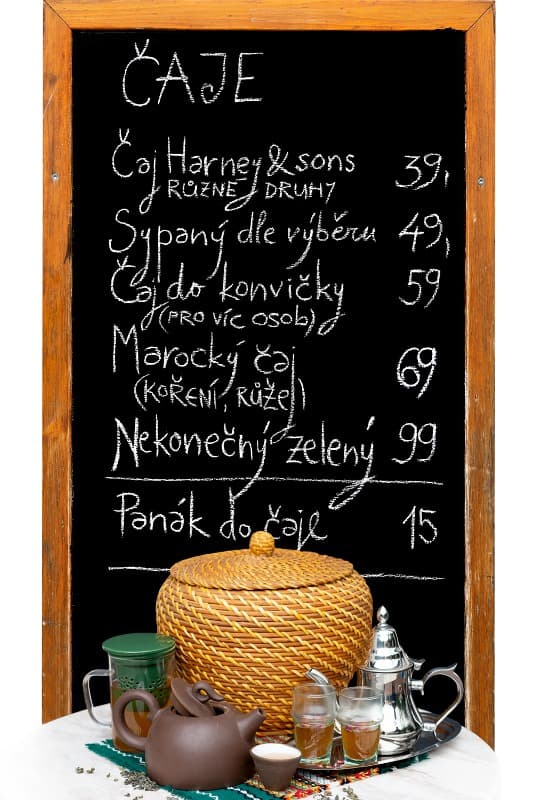 ČAJE
Čaj Harney & sons 39,
RŮZNÉ DRUHY
Sypaný dle výběru 49,
Čaj do konvičky 59
(PRO VÍC OSOB)
Marocký čaj 69
(KOŘENÍ, RŮŽE)
Nekonečný zelený 99
Panák do čaje 15